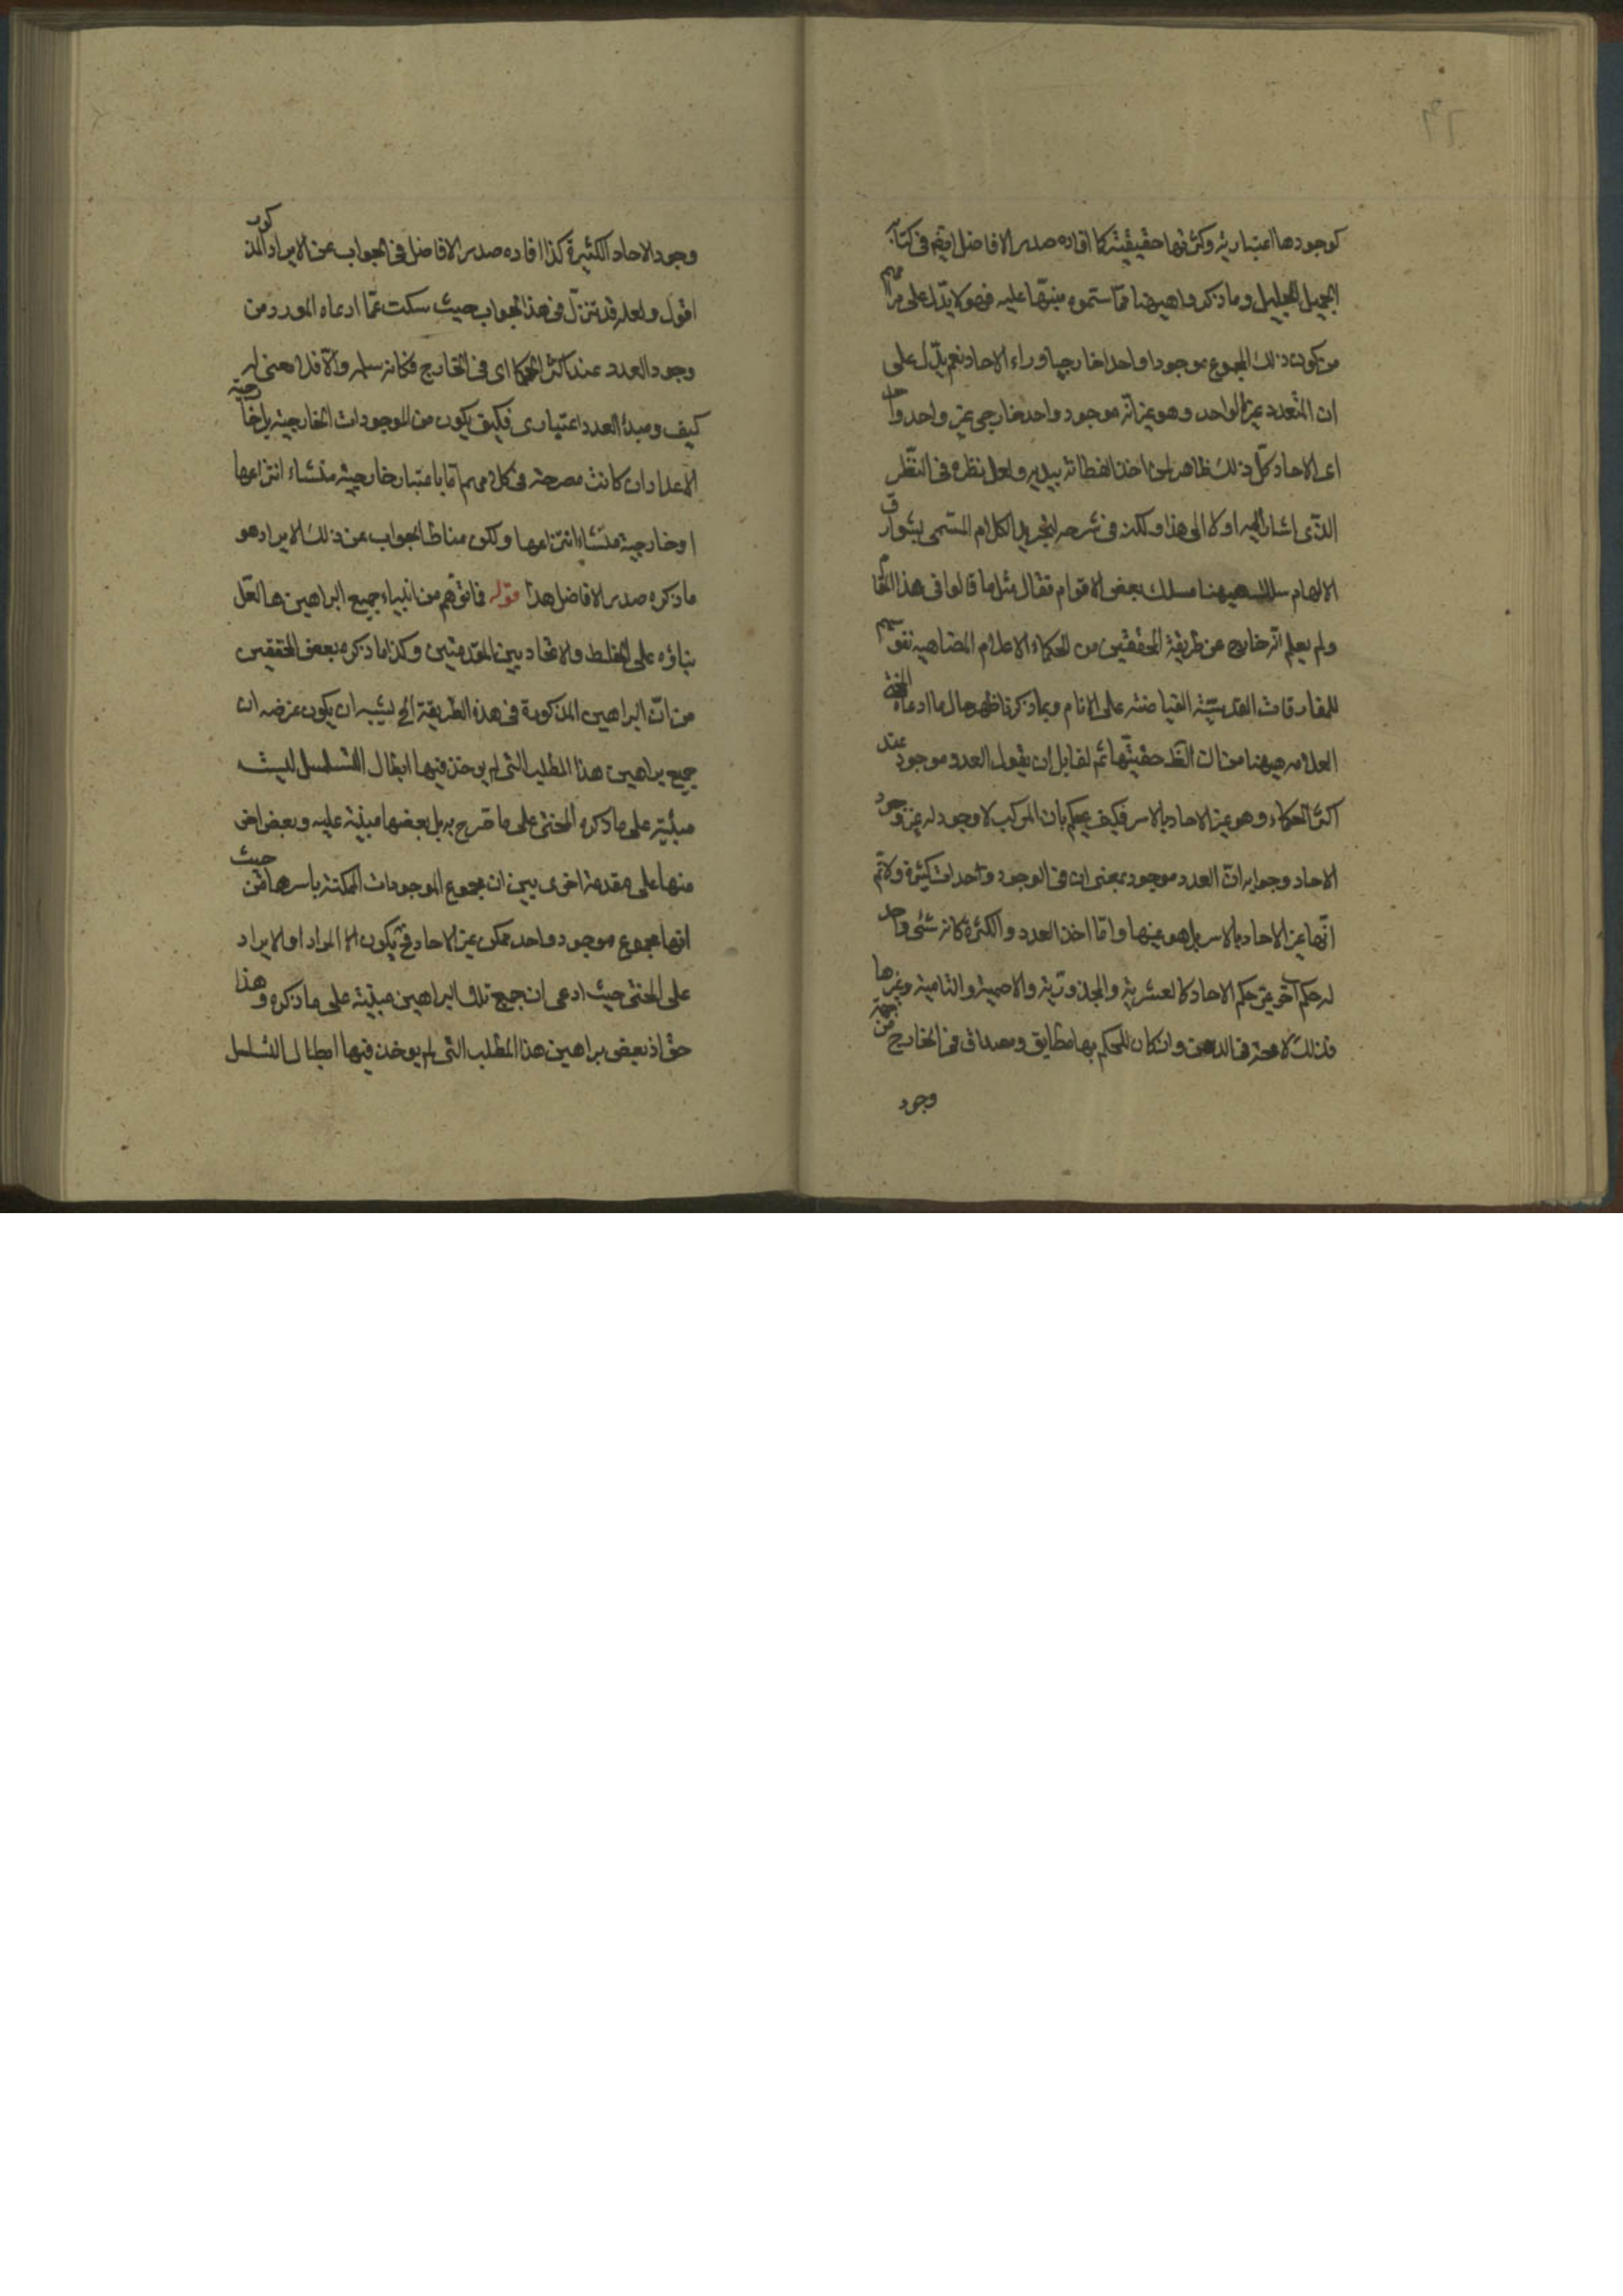 كوجودها اعتبارية وكثرتها حقيقية كما افاده صدر الافاضل ايضم فى كتابه
الجميل الجليل وما ذكروا هيهنا مما ستموه منبها عليه فهو لا يدل على مرامهم
من كون ذلك المجموع موجودا واحدا خارجيا وراء الاحاد نعم يدل على
ان المتعدد غير الواحد وهو غير انه موجود واحد خارجى غير واحد واحد
اى الاحاد كل ذلك ظاهر لمن اخذ الفطانة بيديه ولعل نظره فى النظر
الذى اشار اليه اولا الى هذا ولكنه فى شرحه لتجريد الكلام المسمى بشوارق
الالهام سلك هيهنا مسلك بعض الاقوام فقال مثل ما قالوا فى هذا المقام
ولم يعلم انه خارج عن طريقة المحققين من الحكماء الاعلام المضاهية نفوسهم
للمفارقات القدسية الفياضة على الانام وبما ذكرنا ظهر حال ما ادعاه المحشى
العلامه هيهنا من ان الظ حقيتها ثم لقايل ان يقول العدد موجود عند
اكثر الحكماء وهو غير الاحاد بالاسر فكيف يحكم بان المركب لا وجود له غير وجود
الاحاد وجوابه ان العدد موجود بمعنى ان فى الوجود وحدات كثيرة ولا تم
انها غير الاحاد بالاسر بل هو عينها واما اخذ العدد والكثرة كانه شئى واحد
له حكم آخر غير حكم الاحاد كالعشرية والمجذورية والاصمية والتامية وغيرها
فذلك لا محة فى الذهن وان كان للحكم بها مطابق ومصداق فى الخارج من جهة
وجود
وجود الاحاد الكثيرة كذا افاده صدر الافاضل فى الجواب عن الايراد المذكور
اقول ولعله قد تنزل فى هذا الجواب حيث سكت عما ادعاه المورد من
وجود العدد عند اكثر الحكما اى فى الخارج فكانه سلمه والا فلا معنى له
كيف ومبدأ العدد اعتبارى فكيف يكون من الموجودات الخارجية بل خارجية
الاعداد ان كانت مصرحة فى كلامهم اما باعتبار خارجية منشاء انتزاعها
او خارجية منشاء انتزاعها ولكن مناط الجواب عن ذلك الايراد هو
ما ذكره صدر الافاضل هذا قوله فما توهم من ابتناء جميع البراهين ها لعل
بناؤه على الخلط والاتحاد بين المقدمتين وكذا ما ذكره بعض المحققين
من ان البراهين المذكورة فى هذه الطريقة الخ يشبه ان يكون غرضه ان
جميع براهين هذا المطلب التى لم يوخذ فيها ابطال التسلسل ليست
مبنية على ما ذكره المحشى على ما صرح به بل بعضها مبنية عليه وبعض اخر
منها على مقدمة اخرى يبين ان مجموع الموجودات الممكنة باسرها من حيث
انها مجموع موجود واحد ممكن غير الاحاد فح يكون المراد او الايراد
على المحشى حيث ادعى ان جميع تلك البراهين مبنية على ما ذكره وهذا
حق اذ بعض براهين هذا المطلب التى لم يوخذ فيها ابطال التسلسل